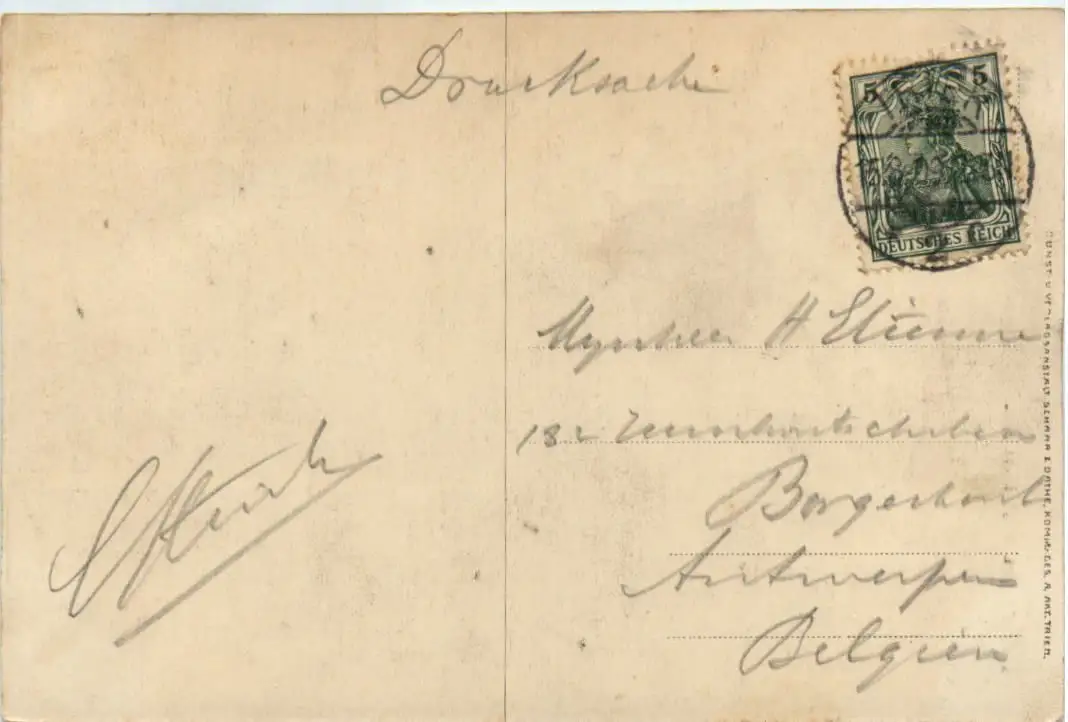 Drucksache
5 5
DEUTSCHES REICH
Mynheer H Etienne
182
Borgerhout
Antwerpen
Belgien
KUNST- U. VERLAGSANSTALT SCHAAR & DATHE, KOMM.-GES. A. AKT. TRIER.